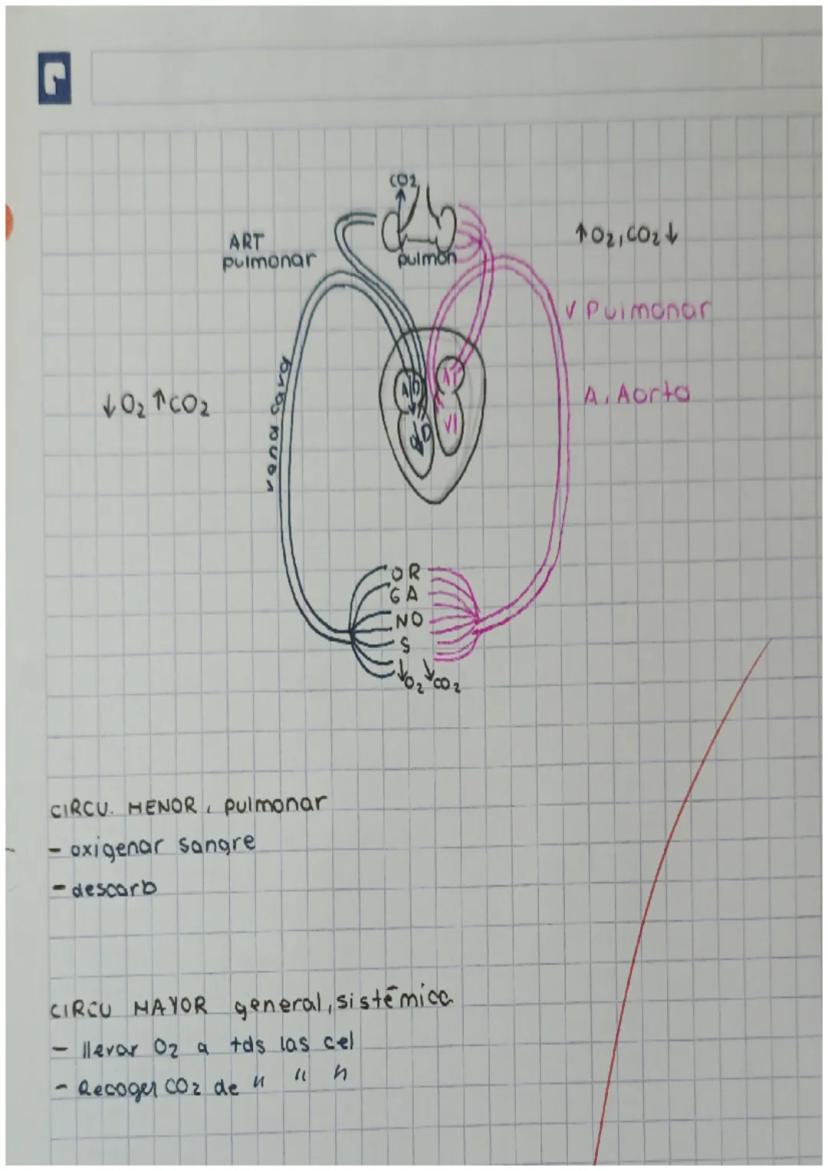 CO2
ART
pulmonar
pulmón
↑O2, CO2↓
V Pulmonar
A. Aorta
↓O2 ↑CO2
AD
VD
VI
OR
GA
NO
S
↓O2 ↓CO2
CIRCU. MENOR, pulmonar
- oxigenar sangre
- descarb
CIRCU MAYOR general, sistémica
- llevar O2 a tds las cel
- Recoger CO2 de " " "